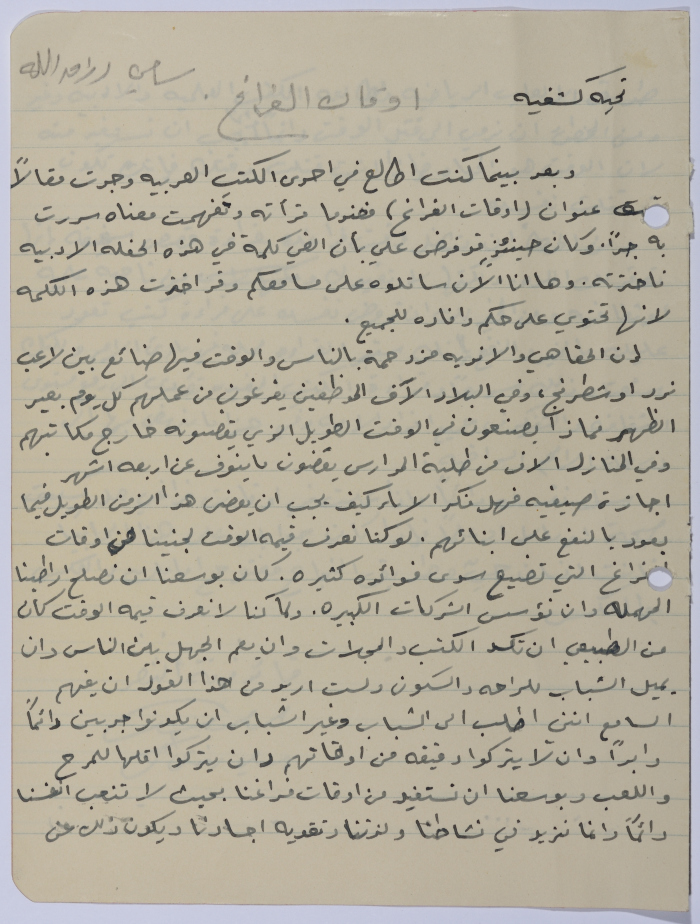 سامي
تحيه كشفيه
اوقات الفراغ
وبعد بينما كنت اطالع في احدى الكتب العربيه وجدت مقالاً
عنوان (اوقات الفراغ) فعندما قرأته وتفهمت معناه سررت
به جداً. وكان حينئذٍ قد فرض علي بأن القي كلمة في هذه الحفله الادبيه
فاخترته. وها انا الآن ساتلوه على مسامعكم وقد اخذت هذه الكلمه
لانها تحتوي على حكم وافاده للجميع.
إن المقاهي والانديه مزدحمة بالناس والوقت فيها ضائع بين لاعب
نرد او شطرنج، وفي البلاد الآف الموظفين يفرغون من عملهم كل يوم بعد
الظهر فماذا يصنعون في الوقت الطويل الذي يقضونه خارج مكاتبهم
وفي المنازل الاف من طلبة المدارس يقضون ما ينوف عن اربعه اشهر
اجازة صيفيه فهل فكر الاباء كيف يجب ان يقضى هذا الزمن الطويل فيما
يعود بالنفع على ابنائهم. لو كنا نعرف قيمه الوقت لجنينا من اوقات
الفراغ التي تضيع سدى فوائده كثيره. كان بوسعنا ان نصلح اراضينا
المهمله وان نؤسس الشركات الكبيره. ولما كنا لا نعرف قيمه الوقت كان
من الطبيعي ان تكسد الكتب والمجلات وان يعم الجهل بين الناس وان
يميل الشباب للراحه والسكون ولست اريد من هذا القول ان يفهم
السامع انني اطلب الى الشباب وغير الشباب ان يكونوا جديين دائماً
وابداً وان لا يتركوا دقيقه من اوقاتهم وان يتركوا اقلها للمرح
واللعب وبوسعنا ان نستفيد من اوقات فراغنا بحيث لا تتعب انفسنا
دائماً وانما نزيد في نشاطنا ولذتنا وتقويه اجسادنا ويكون ذلك عن